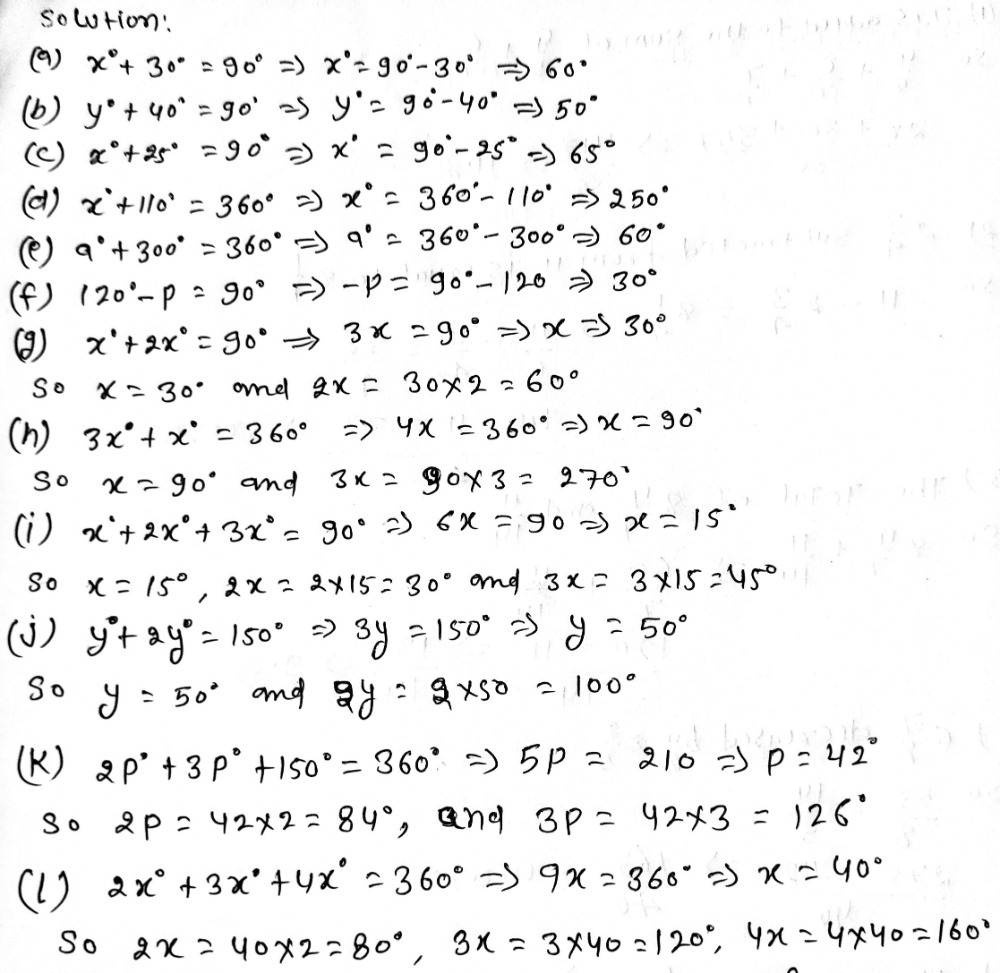 Solution:
(a) x° + 30° = 90° => x° = 90° - 30° => 60°
(b) y° + 40° = 90° => y° = 90° - 40° => 50°
(c) x° + 25° = 90° => x° = 90° - 25° => 65°
(d) x° + 110° = 360° => x° = 360° - 110° => 250°
(e) a° + 300° = 360° => a° = 360° - 300° => 60°
(f) 120° - p = 90° => -p = 90° - 120 => 30°
(g) x° + 2x° = 90° => 3x = 90° => x => 30°
So x = 30° and 2x = 30×2 = 60°
(h) 3x° + x° = 360° => 4x = 360° => x = 90°
So x = 90° and 3x = 90×3 = 270°
(i) x° + 2x° + 3x° = 90° => 6x = 90 => x = 15°
So x = 15°, 2x = 2×15 = 30° and 3x = 3×15 = 45°
(j) y° + 2y° = 150° => 3y = 150° => y = 50°
So y = 50° and 2y = 2×50 = 100°
(K) 2p° + 3p° + 150° = 360° => 5p = 210 => p = 42°
So 2p = 42×2 = 84°, and 3p = 42×3 = 126°
(l) 2x° + 3x° + 4x° = 360° => 9x = 360° => x = 40°
So 2x = 40×2 = 80°, 3x = 3×40 = 120°, 4x = 4×40 = 160°